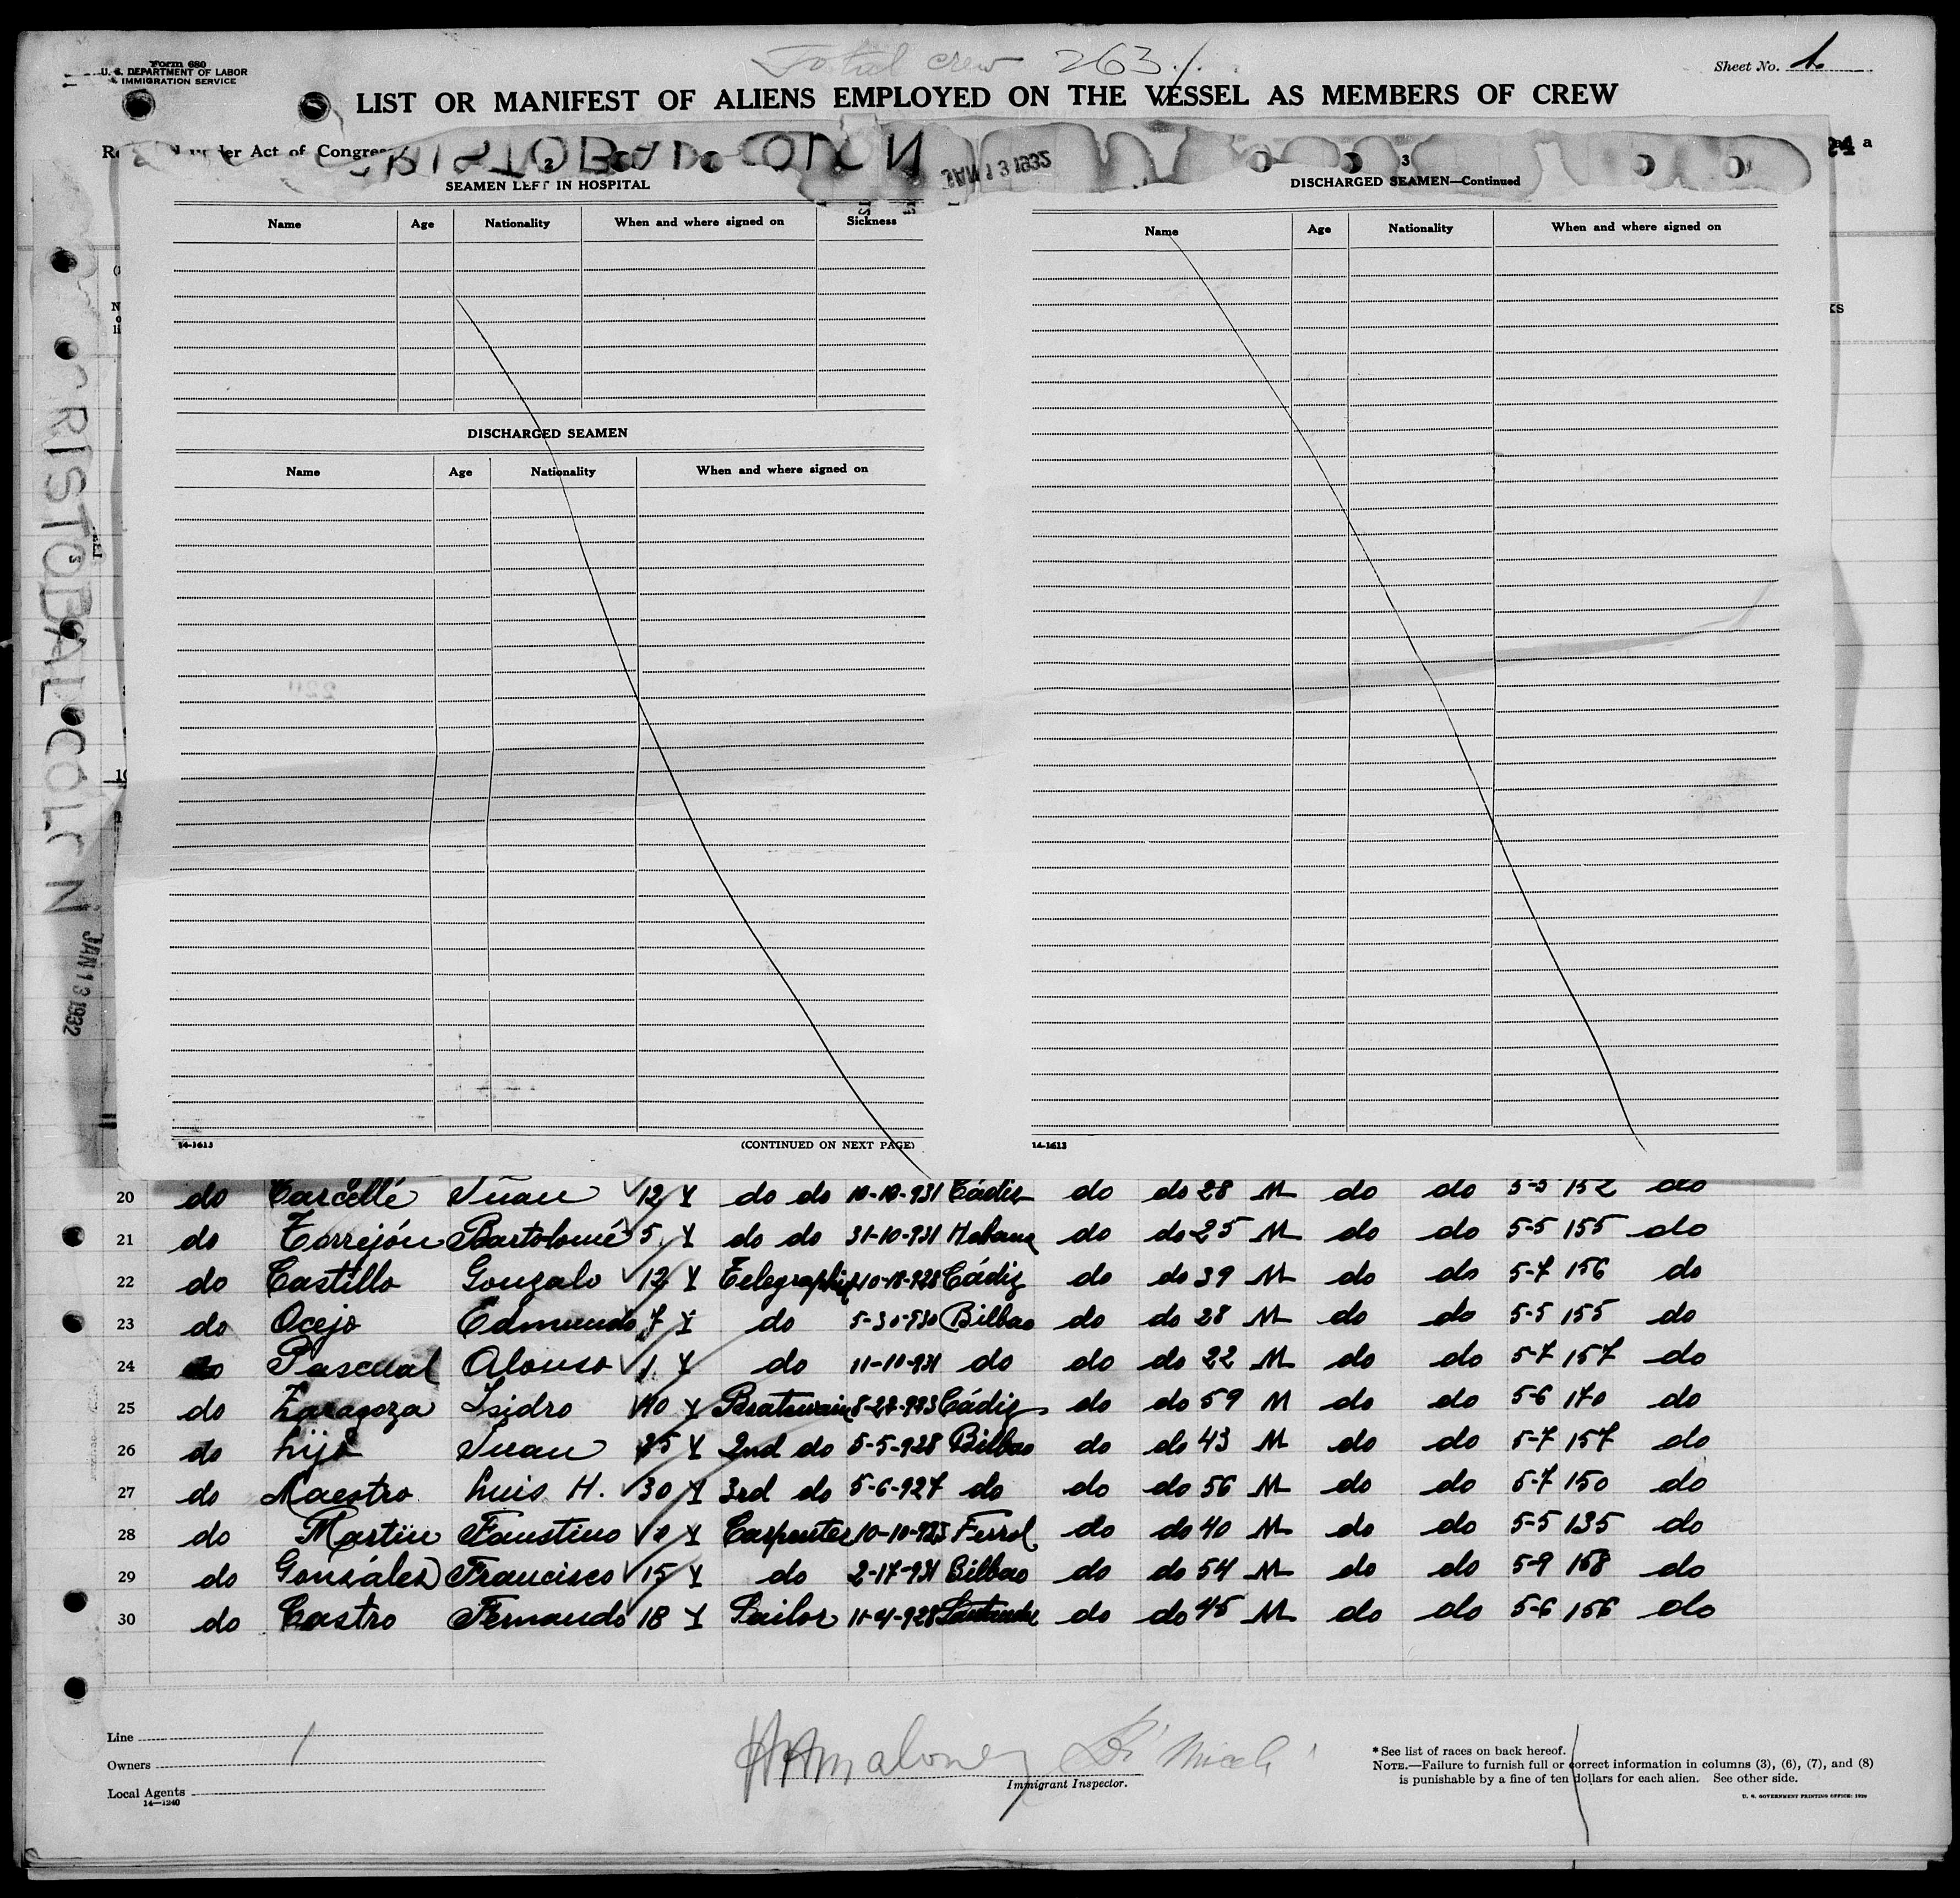 Form 680
U. S. DEPARTMENT OF LABOR
IMMIGRATION SERVICE
Total crew 263
Sheet No. 1
LIST OR MANIFEST OF ALIENS EMPLOYED ON THE VESSEL AS MEMBERS OF CREW
under Act of Congre
RISTOBAL COLON
JAN 13 1932
a
2
SEAMEN LEFT IN HOSPITAL
Name Age Nationality When and where signed on Sickness
DISCHARGED SEAMEN
Name Age Nationality When and where signed on
14-1613
(CONTINUED ON NEXT PAGE)
3
DISCHARGED SEAMEN—Continued
Name Age Nationality When and where signed on
14-1613
CRISTOBAL COLON
JAN 13 1932
20 do Carcellé Juan 12 Y do do 10-10-931 Cádiz do do 28 M do do 5-5 152 do
21 do Torrejón Bartolomé 5 Y do do 31-10-931 Habana do do 25 M do do 5-5 155 do
22 do Castillo Gonzalo 12 Y 10-10-928 Cádiz do do 39 M do do 5-7 156 do
23 do Ocejo Edmundo 7 Y do 5-30-930 Bilbao do do 28 M do do 5-5 155 do
24 do Pascual Alonso 1 Y do 11-11-931 do do do 22 M do do 5-7 157 do
25 do Zaragoza Isidro 40 Y Boatswain Cádiz do do 59 M do do 5-6 170 do
26 do Lijo Juan 25 Y 2nd do 5-5-928 Bilbao do do 43 M do do 5-7 157 do
27 do Maestro Luis H. 30 Y 3rd do 5-6-927 do do do 56 M do do 5-7 150 do
28 do Martin Faustino Y Carpenter Ferrol do do 40 M do do 5-5 135 do
29 do Gonzáles Francisco 15 Y do 2-17-931 Bilbao do do 54 M do do 5-9 168 do
30 do Castro Fernando 18 Y Sailor 11-4-928 Santander do do 45 M do do 5-6 156 do
Line
Owners
Local Agents
14—1240
Maloney
Immigrant Inspector.
*See list of races on back hereof.
NOTE.—Failure to furnish full or correct information in columns (3), (6), (7), and (8)
is punishable by a fine of ten dollars for each alien. See other side.
U. S. GOVERNMENT PRINTING OFFICE: 1929